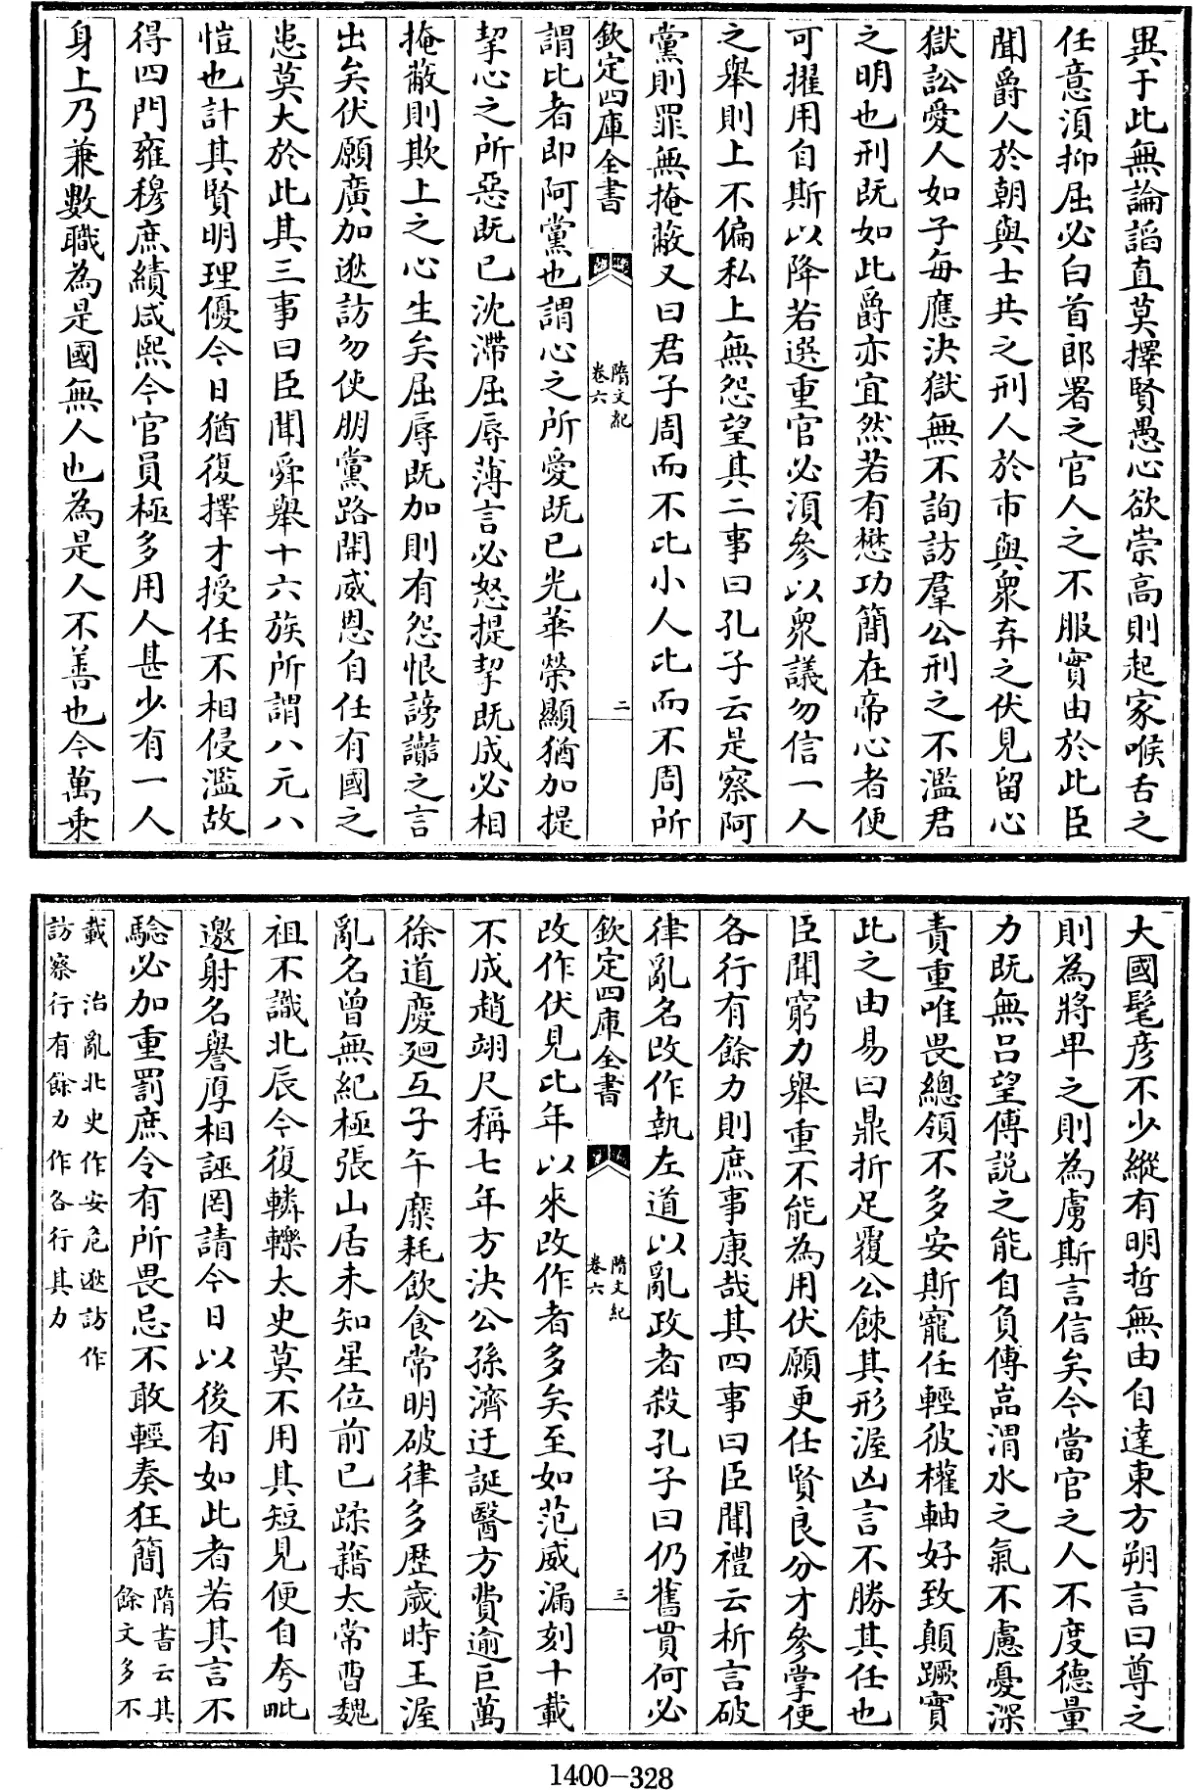 異于此無論諂直莫擇賢愚心欲崇高則起家喉舌之
任意須抑屈必白首郎署之官人之不服實由於此臣
聞爵人於朝與士共之刑人於市與衆弃之伏見留心
獄訟愛人如子每應決獄無不詢訪羣公刑之不濫君
之明也刑既如此爵亦宜然若有懋功簡在帝心者便
可擢用自斯以降若選重官必須參以衆議勿信一人
之舉則上不偏私上無怨望其二事曰孔子云是察阿
黨則罪無掩蔽又曰君子周而不比小人比而不周所
欽定四庫全書
隋文紀
卷六
二
謂比者即阿黨也謂心之所愛既已光華榮顯猶加提
挈心之所惡既已沈滯屈辱薄言必怒提挈既成必相
掩蔽則欺上之心生矣屈辱既加則有怨恨謗讟之言
出矣伏願廣加逖訪勿使朋黨路開威恩自任有國之
患莫大於此其三事曰臣聞舜舉十六族所謂八元八
愷也計其賢明理優今日猶復擇才授任不相侵濫故
得四門雍穆庶績咸熙今官員極多用人甚少有一人
身上乃兼數職為是國無人也為是人不善也今萬乘
大國髦彦不少縱有明哲無由自達東方朔言曰尊之
則為將卑之則為虜斯言信矣今當官之人不度德量
力既無吕望傅説之能自負傅喦渭水之氣不慮憂深
責重唯畏總領不多安斯寵任輕彼權軸好致顛蹶實
此之由易曰鼎折足覆公餗其形渥凶言不勝其任也
臣聞窮力舉重不能為用伏願更任賢良分才參掌使
各行有餘力則庶事康哉其四事曰臣聞禮云析言破
律亂名改作執左道以亂政者殺孔子曰仍舊貫何必
欽定四庫全書
隋文紀
卷六
三
改作伏見比年以來改作者多矣至如范威漏刻十載
不成趙翊尺稱七年方決公孫濟迂誕醫方費逾巨萬
徐道慶廻互子午糜耗飲食常明破律多歴歳時王渥
亂名曾無紀極張山居未知星位前已蹂藉太常曹魏
祖不識北辰今復轔轢太史莫不用其短見便自夸毗
邀射名譽厚相誣罔請今日以後有如此者若其言不
驗必加重罰庶令有所畏忌不敢輕奏狂簡隋書云其
餘文多不
載 治亂北史作安危逖訪作
訪察行有餘力作各行其力
1400-328